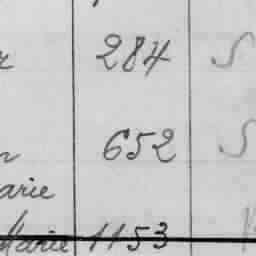 284 S
652 S
arie
Marie 1153